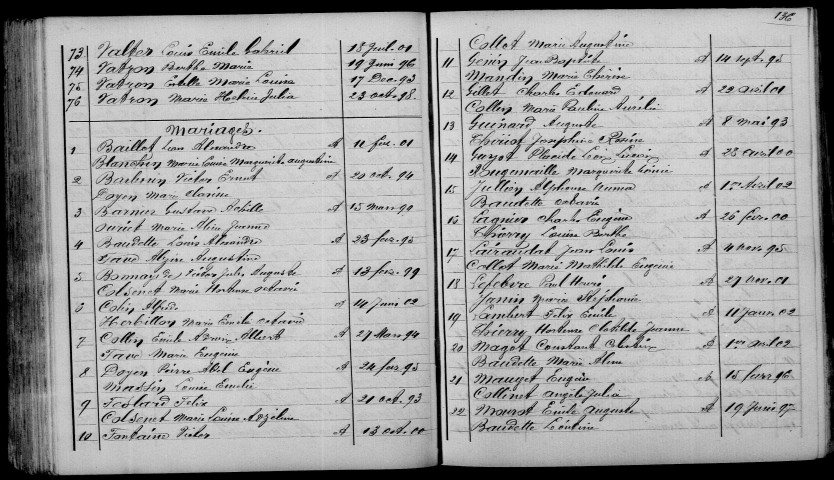 73 Valton Louis Emile Gabriel 18 Juil. 01
74 Vatron Berthe Marie 19 Juin 96
75 Vatron Estelle Marie Louise 17 Dec. 93
76 Vatron Marie Julia 23 oct. 98
Mariages.
1 Baillot Léon Alexandre A 11 fev. 01
Blanchin Marie Marguerite Augustine
2 Barbrin Victor Ernest A 20 oct 94
Doyen Marie Clarisse
3 Barnier Gustave Achille A 15 Mars 90
Marie Aline Jeanne
4 Baudette Louis Alexandre A 23 fev. 95
Alzire Augustine
5 Bonnay Victor Jules Auguste A 13 fev. 99
Colsenet Marie Hortense Octavie
6 Colin Alfred A 14 Janv 02
Herbillon Marie Emilie Octavie
7 Collin Emile Albert A 27 Mars 94
Marie Eugénie
8 Doyen Pierre Abel Eugène A 24 fev. 95
Massin Louise Emélie
9 Félix A 21 oct. 93
Colsenet Marie Louise
10 Fontaine Victor A 13 oct. 00
136
Collot Marie Augustine
11 Génin Jean Baptiste A 14 sept. 95
Mandin Marie Thérèse
12 Gillet Charles Edouard A 22 avril 01
Collin Marie Pauline Aurélie
13 Guinard Auguste A 8 mai 93
Joséphine Rosine
14 Guyot Placide A 28 avril 00
Marguerite Louise
15 Jullion Alphonse Numa A 1er Avril 02
Baudette Octavie
16 Charles Eugène A 26 fev. 00
Thierry Louise Berthe
17 Jean Louis A 4 nov. 95
Collot Marie Mathilde Eugénie
18 Lefebvre Paul Henri A 27 nov. 01
Jamin Marie Stéphanie
19 Lambert Félix Emile A 11 Janv. 02
Thierry Hortense Clotilde Jeanne
20 Magot Constant A 1er avril 02
Baudette Marie Aline
21 Mauget Eugène A 15 fevr 96
Collinet Angèle Julia
22 Emile Auguste A 19 Juin 97
Baudette Léontine